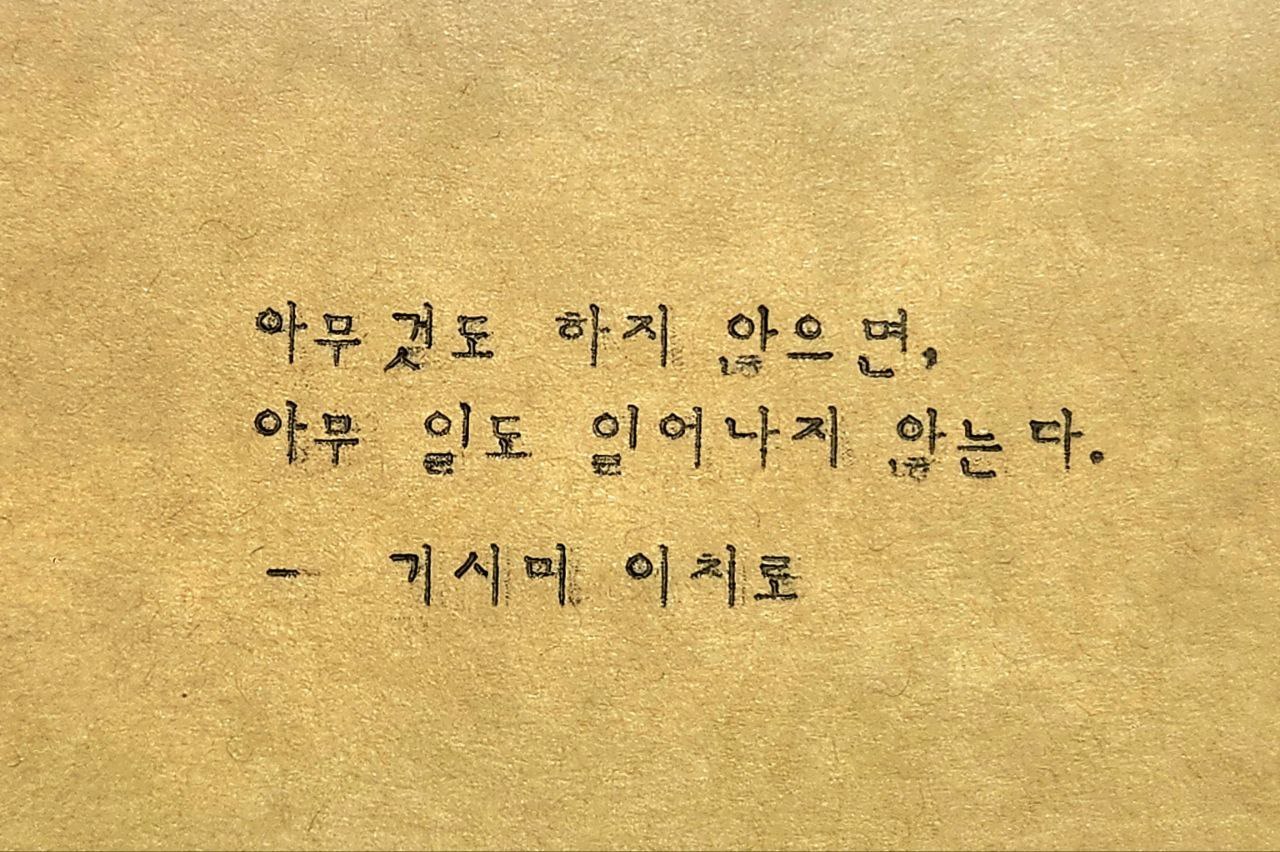 아무것도 하지 않으면,
아무 일도 일어나지 않는다.
- 기시미 이치로